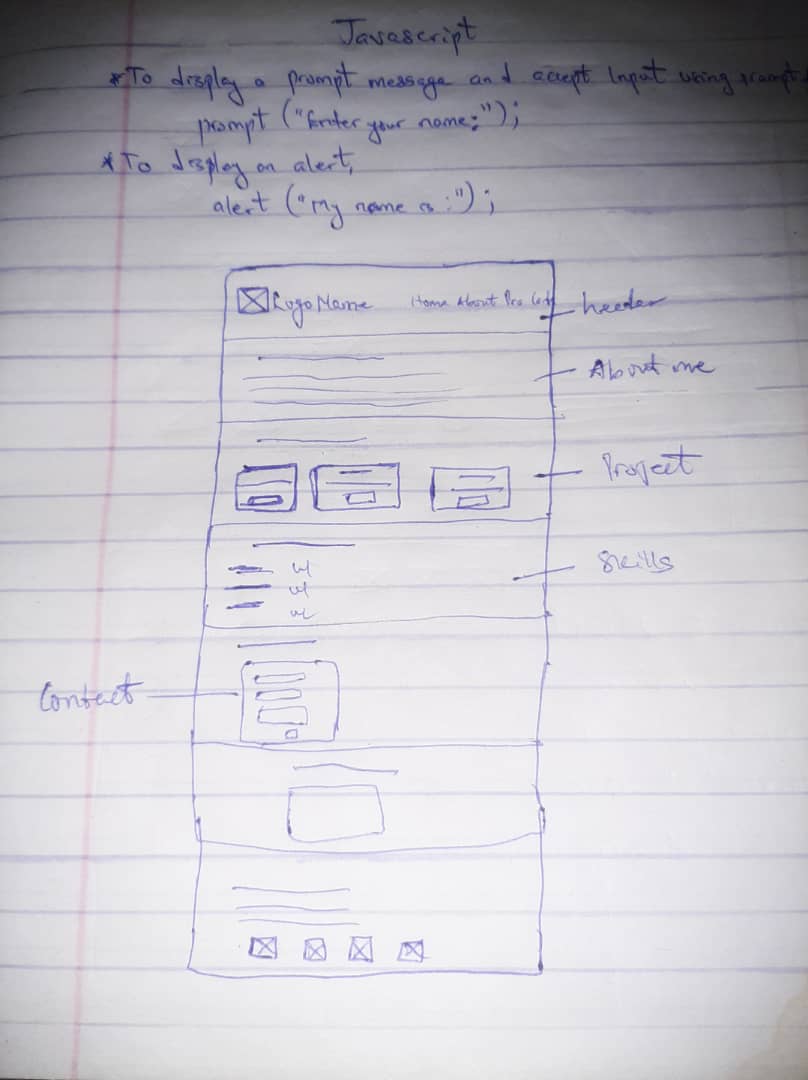 Javascript
*To display a prompt message and accept Input using prompt
prompt ("Enter your name:");
*To display an alert,
alert ("My name is:");
Logo Name Home About Pro
header
About me
Project
Skills
Contact